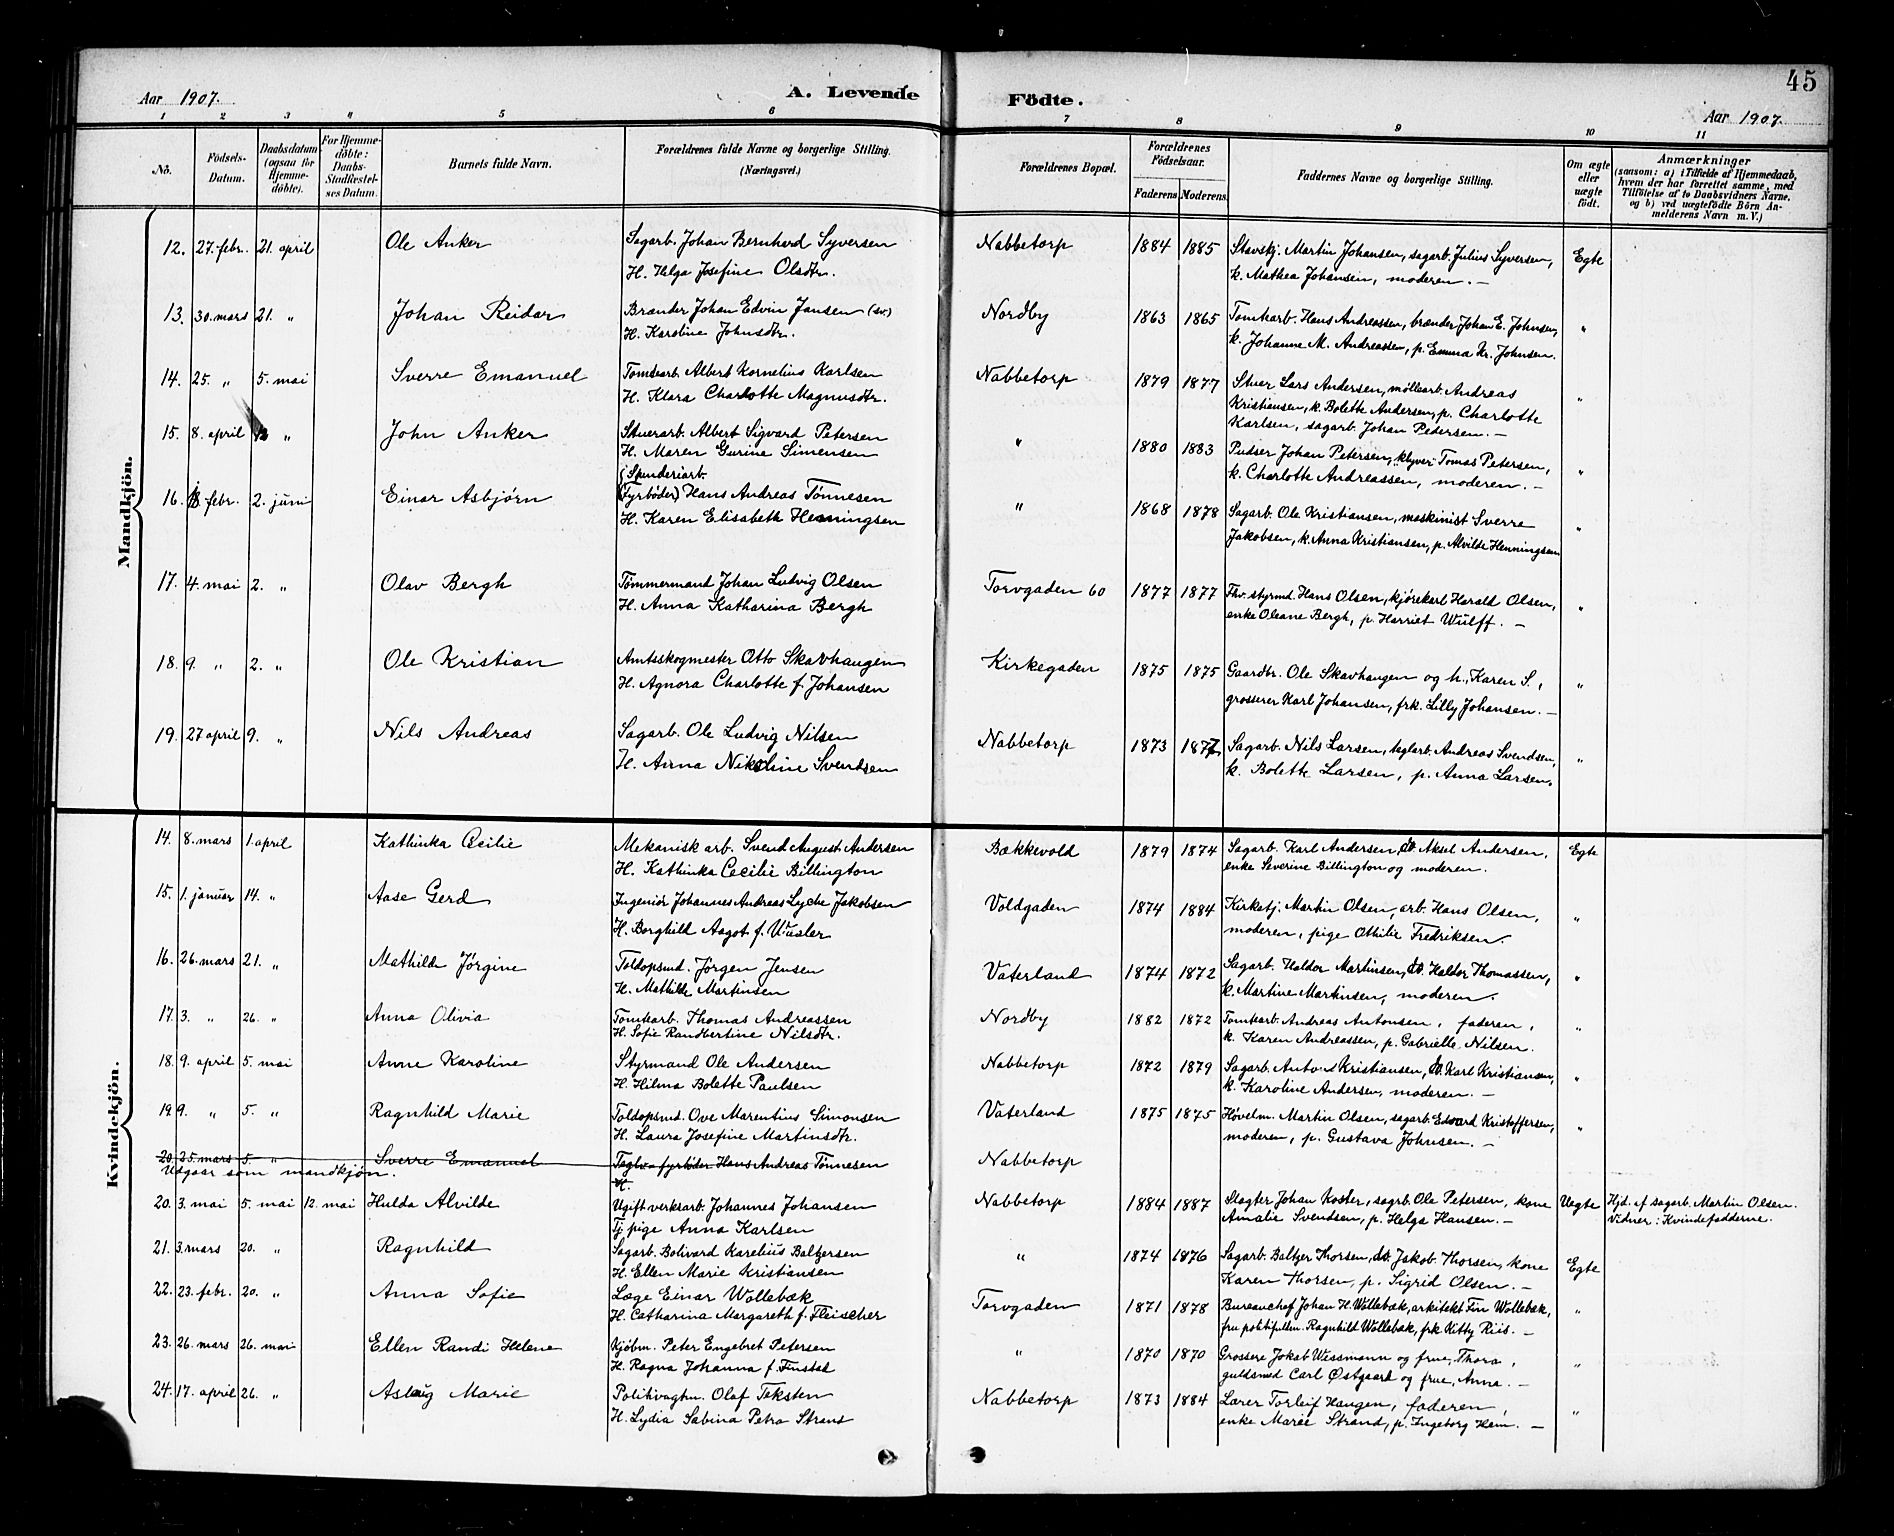 45
Aar 1907. A. Levende Födte. Aar 1907.
1 2 3 4 5 6 7 8 9 10 11
No. Födsels-Datum. Daabsdatum (ogsaa for Hjemmedöbte). For Hjemmedöbte: Daabs-Stadfæstelses Datum. Barnets fulde Navn. Forældrenes fulde Navne og borgerlige Stilling. (Næringsvei.) Forældrenes Bopæl. Forældrenes Födselsaar. Faderens Moderens. Faddernes Navne og borgerlige Stilling. Om ægte eller uægte födt. Anmærkninger (saasom: a) i Tilfælde af Hjemmedaab, hvem der har forrettet samme, med Tilföielse af to Daabsvidners Navne. og b) ved uægtefödte Börn Anmelderens Navn m. V.)
Mandkjön.
12. 27. febr. 21. april Ole Anker Sagarb. Johan Bernhard Syversen Nabbetorp 1884 1885 Stavskj. Martin Johansen, sagarb. Julius Syversen, Egte
H. Helga Josefine Olsdtr. k. Mathea Johansen, moderen. —
13. 30. mars 21. " Johan Reidar Brænder Johan Edvin Jansen (sv.) Nordby 1863 1865 Tomtearb. Hans Andreassen, brænder Johan E. Johnsen, "
H. Karoline Johnsdtr. k. Johanne M. Andreassen, p. Emma Kr. Johnsen.
14. 25. " 5. mai Sverre Emanuel Tomtearb. Albert Kornelius Karlsen Nabbetorp 1879 1877 Stuer Lars Andersen, möllearb. Andreas "
H. Klara Charlotte Magnusdtr. Kristiansen, k. Bolette Andersen, p. Charlotte
Karlsen, sagarb. Johan Pedersen. —
15. 8. april " John Anker Stuerarb. Albert Sigvard Petersen " 1880 1883 Pudser Johan Petersen, kløver Tomas Petersen, "
H. Maren Gurine Simensen k. Charlotte Andreassen, moderen. —
(Spinderiarb.
16. febr. 2. juni Einar Asbjörn (Fyrböder) Hans Andreas Tönnesen " 1868 1878 Sagarb. Ole Kristiansen, maskinist Sverre "
H. Karen Elisabeth Henningsen Jakobsen, k. Anna Kristiansen, p. Alvilde Henningsen
17. 4. mai 2. " Olav Bergh Tømmermand Johan Ludvig Olsen Torvgaden 60 1877 1877 Fhv. styrmd. Hans Olsen, kjörekarl Harald Olsen, "
H. Anna Katharina Bergh enke Oleane Bergh, p. Harriet Wulff. —
18. 9. " 2. " Ole Kristian Amtsskogmester Otto Skavhaugen Kirkegaden 1875 1875 Gaardbr. Ole Skavhaugen og h., Karen S., "
H. Agnora Charlotte f. Johansen grosserer Karl Johansen, frk. Lilly Johansen. —
19. 27 april 9. " Nils Andreas Sagarb. Ole Ludvig Nilsen Nabbetorp 1873 1877 Sagarb. Nils Larsen, teglarb. Andreas Svendsen, "
H. Anna Nikoline Svendsen k. Bolette Larsen, p. Anna Larsen.
Kvindekjön.
14. 8. mars 1. april Kathinka Cecilie Mekanisk arb. Svend August Andersen Bækkevold 1879 1874 Sagarb. Karl Andersen, do. Aksel Andersen, Egte
H. Kathinka Cecilie Billington enke Severine Billington og moderen.
15. 1. januar 14. " Aase Gerd Ingeniör Johannes Andreas Lyche Jakobsen Voldgaden 1874 1884 Kirketj. Martin Olsen, arb. Hans Olsen, "
H. Borghild Aagot f. moderen, pige Othilie Fredriksen.
16. 26. mars 21. " Mathilde Jörgine Toldopsnd. Jörgen Jensen Vaterland 1874 1872 Sagarb. Haldor Martinsen, do. Haldor Thomassen, "
H. Mathilde Martinsen k. Martine Martinsen, moderen.
17. 3. " 26. " Anna Olivia Tomtearb. Thomas Andreassen Nordby 1882 1872 Tomtearb. Andreas Antonsen, faderen, "
H. Sofie Randbertine Nilsdtr. k. Karen Andreassen, p. Gabrielle Nilsen.
18. 9. april 5. mai Anne Karoline Styrmand Ole Andersen Nabbetorp 1872 1879 Sagarb. Anton Kristiansen, do. Karl Kristiansen, "
H. Hilma Bolette Paulsen k. Karoline Andersen, moderen. —
19. 9. " 5. " Ragnhild Marie Toldopsnd. Ove Marentius Simonsen Vaterland 1875 1875 Hövelm. Martin Olsen, sagarb. Edvard Kristoffersen, "
H. Laura Josefine Martinsdtr. moderen, p. Gustava Johnsen. —
20. 25. mars 5. " Sverre Emanuel fyrböder Hans Andreas Tönnesen Nabbetorp
Udgaar som mandkjön. H.
20. 3. mai 5. mai 12. mai Hulda Alvilde Ugift verksarb. Johannes Johansen Nabbetorp 1884 1887 Slagter Johan Koster, sagrb. Ole Petersen, kone Uegte Hjd. af sagarb. Martin Olsen.
Tj. pige Anna Karlsen Amalie Svendsen, p. Helga Hansen. — Vidner: Kvindefadderne.
21. 3. mars 20. " Ragnhild Sagarb. Bolivard Karelius Baltzersen " 1874 1876 Sagarb. Baltzer Thorsen, do. Jakob Thorsen, kone Egte
H. Ellen Marie Kristiansen Karen Thorsen, p. Sigrid Olsen. —
22. 23. febr. 20. " Anna Sofie Læge Einar Wollebæk Torvgaden 1871 1878 Bureauchef Johan H. Wollebæk, arkitekt Fin Wollebæk, "
H. Catharina Margareth f. Fleischer fru politifuldm. Ragnhild Wollebæk, frk. Kitty Riis. —
23. 26. mars 26. mai Ellen Randi Helene Kjöbm. Peter Engebret Petersen " 1870 1870 Grossere Jakob Wessmann og frue, Thora, "
H. Ragna Johanna f. Finstad guldsmed Carl Østgaard og frue, Anna. —
24. 17. april 26. " Aslaug Marie Politivagtm. Olaf Teksten Nabbetorp 1873 1884 Lærer Torleif Haugen, faderen, "
H. Lydia Sabina Petra Strand enke Marie Strand, p. Ingeborg Hem. —